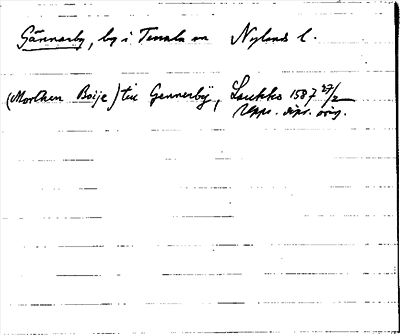 Gännarby, by i Tenala sn Nylands l.
(Morthen Boije) till Gennerby, Laukko 1587 27/2
Upps. dipl. orig.